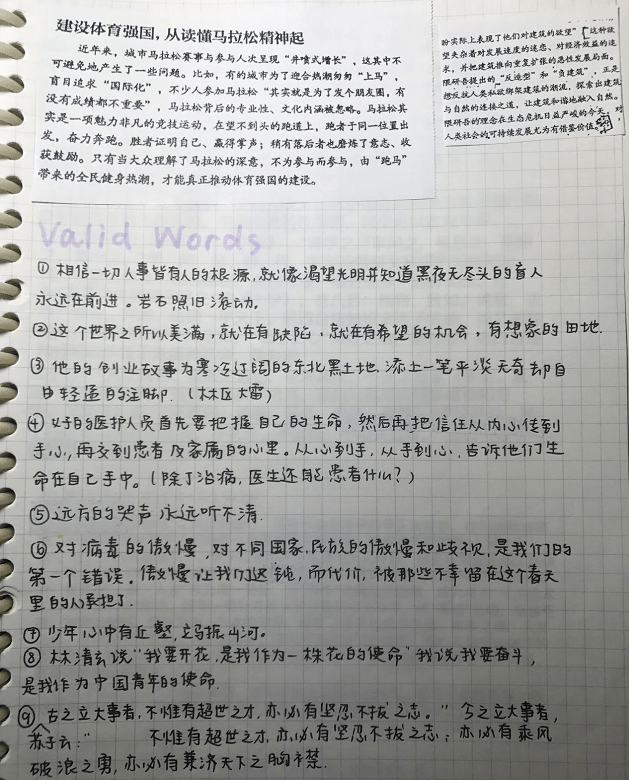 建设体育强国，从读懂马拉松精神起
近年来，城市马拉松赛事与参与人次呈现“井喷式增长”，这其中不
可避免地产生了一些问题。比如，有的城市为了迎合热潮匆匆“上马”，
盲目追求“国际化”，不少人参加马拉松“其实就是为了发个朋友圈，有
没有成绩都不重要”，马拉松背后的专业性、文化内涵被忽略。马拉松其
实是一项魅力非凡的竞技运动，在望不到头的跑道上，跑者于同一位置出
发，奋力奔跑。胜者证明自己、赢得掌声；稍有落后者也磨炼了意志、收
获鼓励。只有当大众理解了马拉松的深意，不为参与而参与，由“跑马”
带来的全民健身热潮，才能真正推动体育强国的建设。
纷实际上表现了他们对建筑的欲望”［这种欲
望夹杂着对发展速度的迷恋、对经济效益的追
求，并把建筑推向空复扩张的恶性发展局面。
隈研吾提出的“反造型”和“负建筑”，正是
想反抗人类私欲绑架建筑的潮流，探索出建筑
与自然的连接之道，让建筑和谐地融入自然。
隈研吾的理念在生态危机日益严峻的今天，对
人类社会的可持续发展尤为有借鉴价值。
Valid Words
①相信一切人事皆有人的根源，就像渴望光明并知道黑夜无尽头的盲人
永远在前进。岩石照旧滚动。
②这个世界之所以美满，就在有缺陷，就在有希望的机会，有想象的田地.
③他的创业故事为寒冷辽阔的东北黑土地添上一笔平淡无奇却自
由轻逸的注脚.（林区大雷）
④好的医护人员首先要把握自己的生命，然后再把信任从内心传到
手心，再交到患者及家属的心里。从心到手，从手到心，告诉他们生
命在自己手中。（除了治病，医生还能患者什么？）
⑤远方的哭声永远听不清.
⑥对病毒的傲慢，对不同国家、民族的傲慢和歧视，是我们的
第一个错误。傲慢让我们迟钝，而代价，被那些不幸留在这个春天
里的人承担了.
⑦少年心中有丘壑，立马振山河。
⑧林清玄说“我要开花，是我作为一株花的使命”我说我要奋斗，
是我作为中国青年的使命.
⑨古之立大事者，不惟有超世之才，亦必有坚忍不拔之志。”今之立大事者，
苏子云：“不惟有超世之才，亦必有坚忍不拔之志；亦必有乘风
破浪之勇，亦必有兼济天下之胸襟.